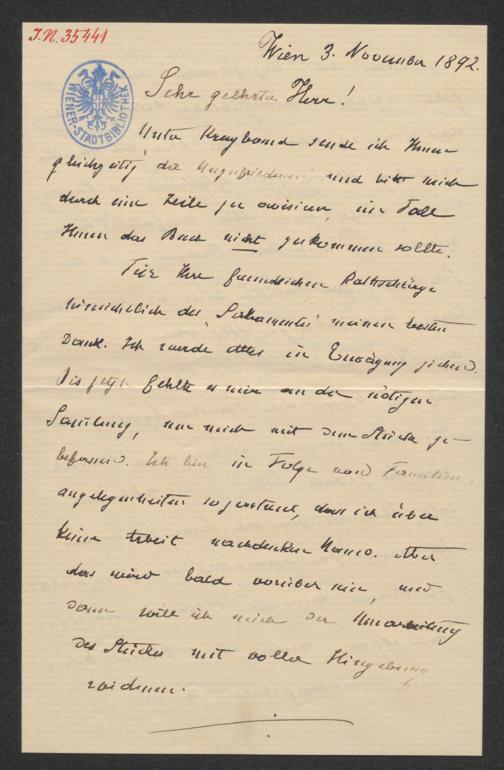 I.N. 35441
WIENER-STADTBIBLIOTHEK
Wien 3. November 1892.
Sehr geehrter Herr!
Unter Kreuzband sende ich Ihnen
gleichzeitig die und bitte mich
durch eine Zeile zu avisieren, im Falle
Ihnen das Buch nicht zukommen sollte.
Für Ihre freundlichen Rathschläge
hinsichtlich des meinen besten
Dank. Ich werde alles in Erwägung ziehen.
Bis jetzt fehlte es mir an der nötigen
Samlung, um mich mit dem Stücke zu
befassen. Ich bin in Folge von Familien-
angelegenheiten so zerstreut, dass ich über
keine Arbeit nachdenken kann. Aber
das wird bald vorüber sein, und
dann will ich mich der Umarbeitung
des Stückes mit voller Hingebung
widmen.